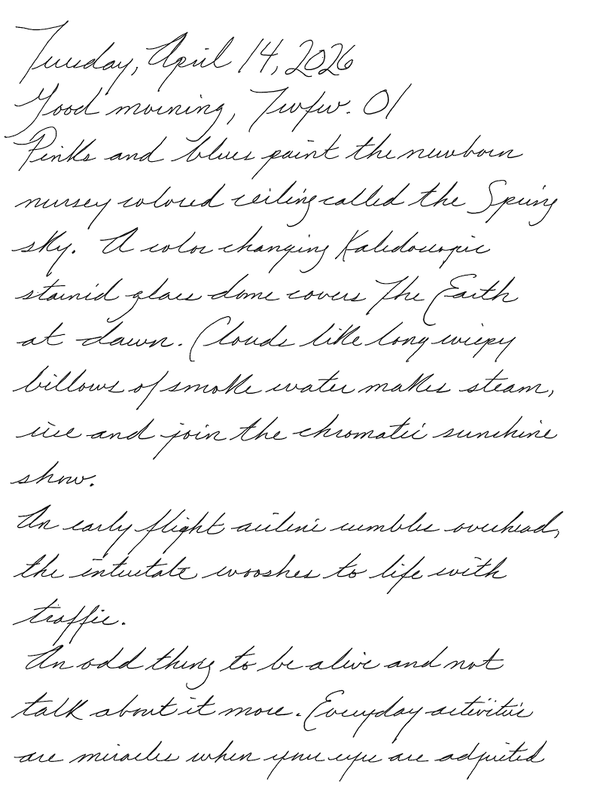 Tuesday, April 14, 2026
Good morning, Twfw. 01
Pinks and blues paint the newborn
nursey colored ceiling called the Spring
sky. A color changing Kaleidoscopic
stained glass dome covers The Earth
at dawn. Clouds like long wispy
billows of smoke water makes steam,
rise and join the chromatic sunshine
show.
An early flight airline rumbles overhead,
the interstate wooshes to life with
traffic.
An odd thing to be alive and not
talk about it more. Everyday activities
are miracles when your eyes are adjusted